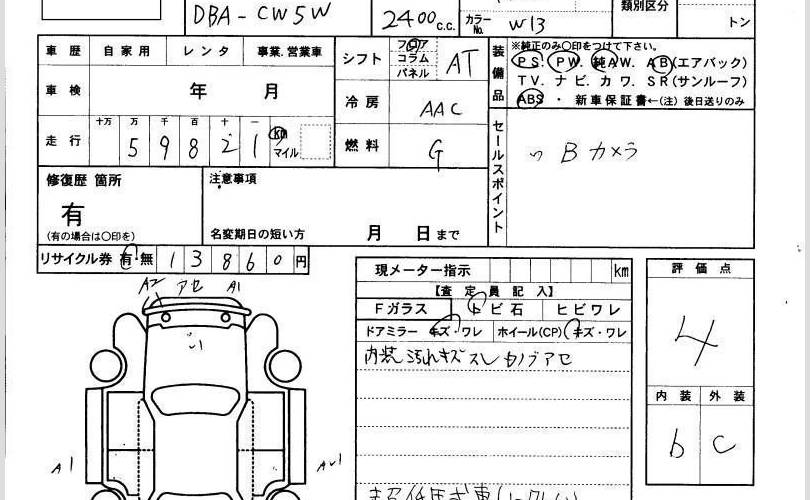 DBA-CW5W
2400 c.c.
カラーNo. W13
類別区分
トン
車歴 自家用 レンタ 事業.営業車
シフト フロア コラム パネル AT
装備品 ※純正のみ〇印をつけて下さい。
PS. PW. 純AW. AB(エアバッグ)
TV. ナビ. カワ. SR(サンルーフ)
ABS ・ 新車保証書←(注) 後日送りのみ
車検 年 月
冷房 AAC
走行 十万 万 千 百 十 一
59821 km マイル
燃料 G
セールスポイント
Bカメラ
修復歴 箇所
有
(有の場合は〇印を)
注意事項
名変期日の短い方 月 日 まで
リサイクル券 有・無 13860円
現メーター指示 km
【査定員記入】
Fガラス トビ石 ヒビワレ
ドアミラー キズ・ワレ ホイール(CP) キズ・ワレ
内装 汚れキズ スレ
評価点
4
内装 外装
b C
A2 アセ A1
A1